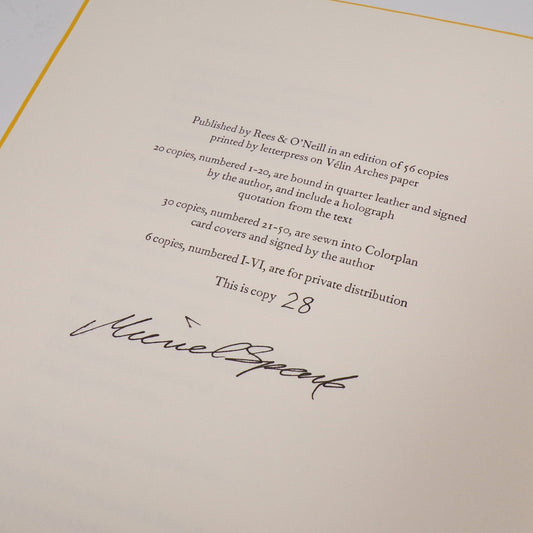 Published by Rees & O'Neill in an edition of 56 copies
printed by letterpress on Vélin Arches paper
20 copies, numbered 1-20, are bound in quarter leather and signed
by the author, and include a holograph
quotation from the text
30 copies, numbered 21-50, are sewn into Colorplan
card covers and signed by the author
6 copies, numbered I-VI, are for private distribution
This is copy 28
Muriel Spark